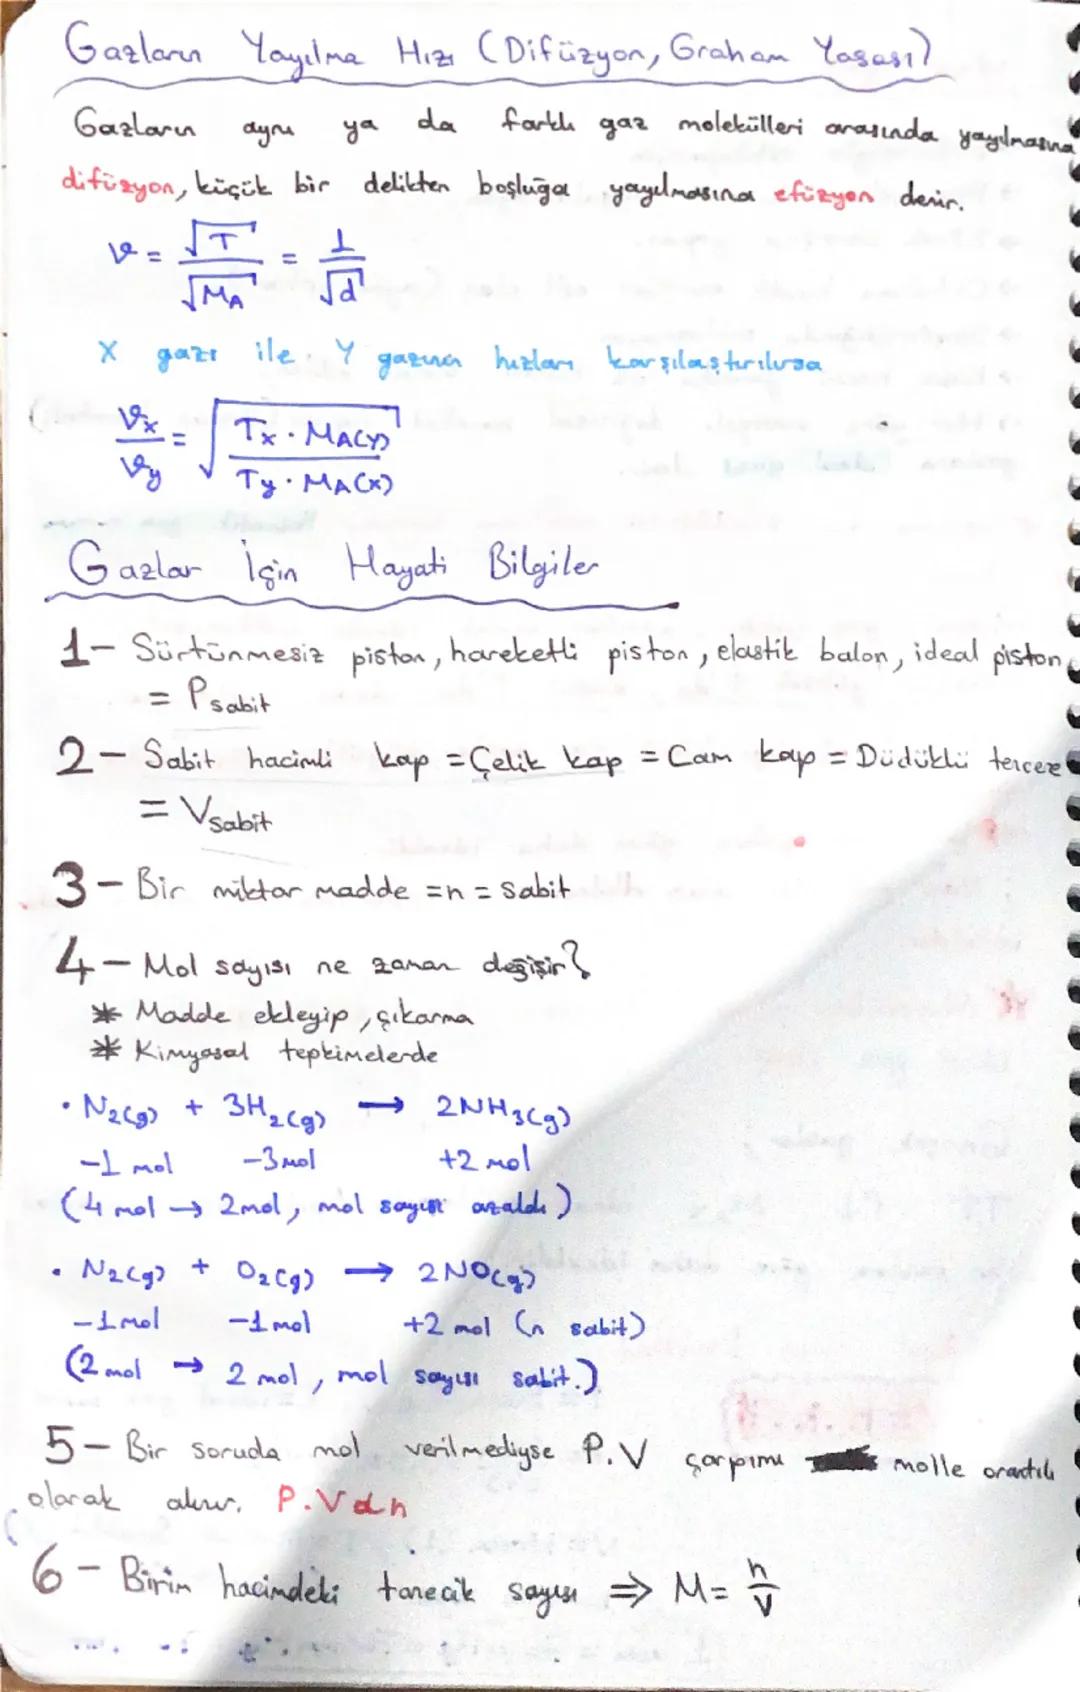 Gazların Yayılma Hızı (Difüzyon, Graham Yasası)
Gazların aynı ya da farklı gaz molekülleri arasında yayılmasına
difüzyon, küçük bir delikten boşluğa yayılmasına efüzyon denir.
v = √T / √MA = 1 / √d
X gazı ile Y gazının hızları karşılaştırılırsa
vx / vy = √(Tx · MA(Y) / Ty · MA(X))
Gazlar İçin Hayati Bilgiler
1- Sürtünmesiz piston, hareketli piston, elastik balon, ideal piston
= Psabit
2- Sabit hacimli kap = Çelik kap = Cam kap = Düdüklü tencere
= Vsabit
3- Bir miktar madde = n = sabit
4- Mol sayısı ne zaman değişir?
* Madde ekleyip, çıkarma
* Kimyasal tepkimelerde
• N2(g) + 3H2(g) → 2NH3(g)
-1 mol -3 mol +2 mol
(4 mol → 2mol, mol sayısı azaldı)
• N2(g) + O2(g) → 2NO(g)
-1 mol -1 mol +2 mol (n sabit)
(2 mol → 2 mol, mol sayısı sabit.)
5- Bir soruda mol verilmediyse P.V çarpımı molle orantılı
olarak alınır. P.V α n
6- Birim hacimdeki tanecik sayısı ⇒ M = n/V